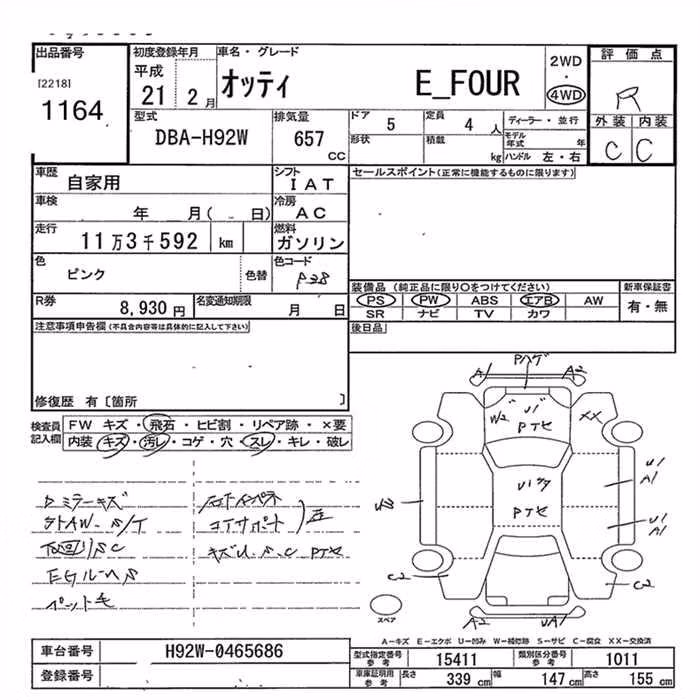 出品番号
[2218]
1164
初度登録年月
平成
21 2 月
車名・グレード
オッティ E_FOUR
2WD
・
4WD
評価点
R
外装 内装
C C
型式
DBA-H92W
排気量
657 CC
ドア 5
定員 4 人
ディーラー・並行
形状
積載 kg
モデル年式 年
ハンドル 左・右
車歴
自家用
シフト
IAT
車検
年 月( 日)
冷房
AC
走行
11万3千592 km
燃料
ガソリン
色
ピンク
色替
色コード
P38
R券
8,930 円
名変通知期限
月 日
セールスポイント(正常に機能するものに限ります)
装備品 (純正品に限り○をつけてください)
PS PW ABS エアB AW
SR ナビ TV カワ
新車保証書
有・無
後日品
注意事項申告欄(不具合内容等は具体的に記入して下さい)
修復歴 有〔箇所 〕
検査員記入欄
FW キズ・飛石・ヒビ割・リペア跡・×要
内装 キズ・汚レ・コゲ・穴・スレ・キレ・破レ
Dミラーキズ
下回りSC
ペット毛
コアサポート
PTセ
A1
Pハゲ
A2
W2
U1
PTセ
XX
PTセ
U1
A1
U1
A1
C2
C2
A2
UA1
スペア
A-キズ E-エクボ U-凹み W-補修跡 S-サビ C-腐食 XX-交換済
車台番号
H92W-0465686
登録番号
型式指定番号 参考
15411
類別区分番号 参考
1011
車庫証明用 参考
長さ 339 cm
幅 147 cm
高さ 155 cm